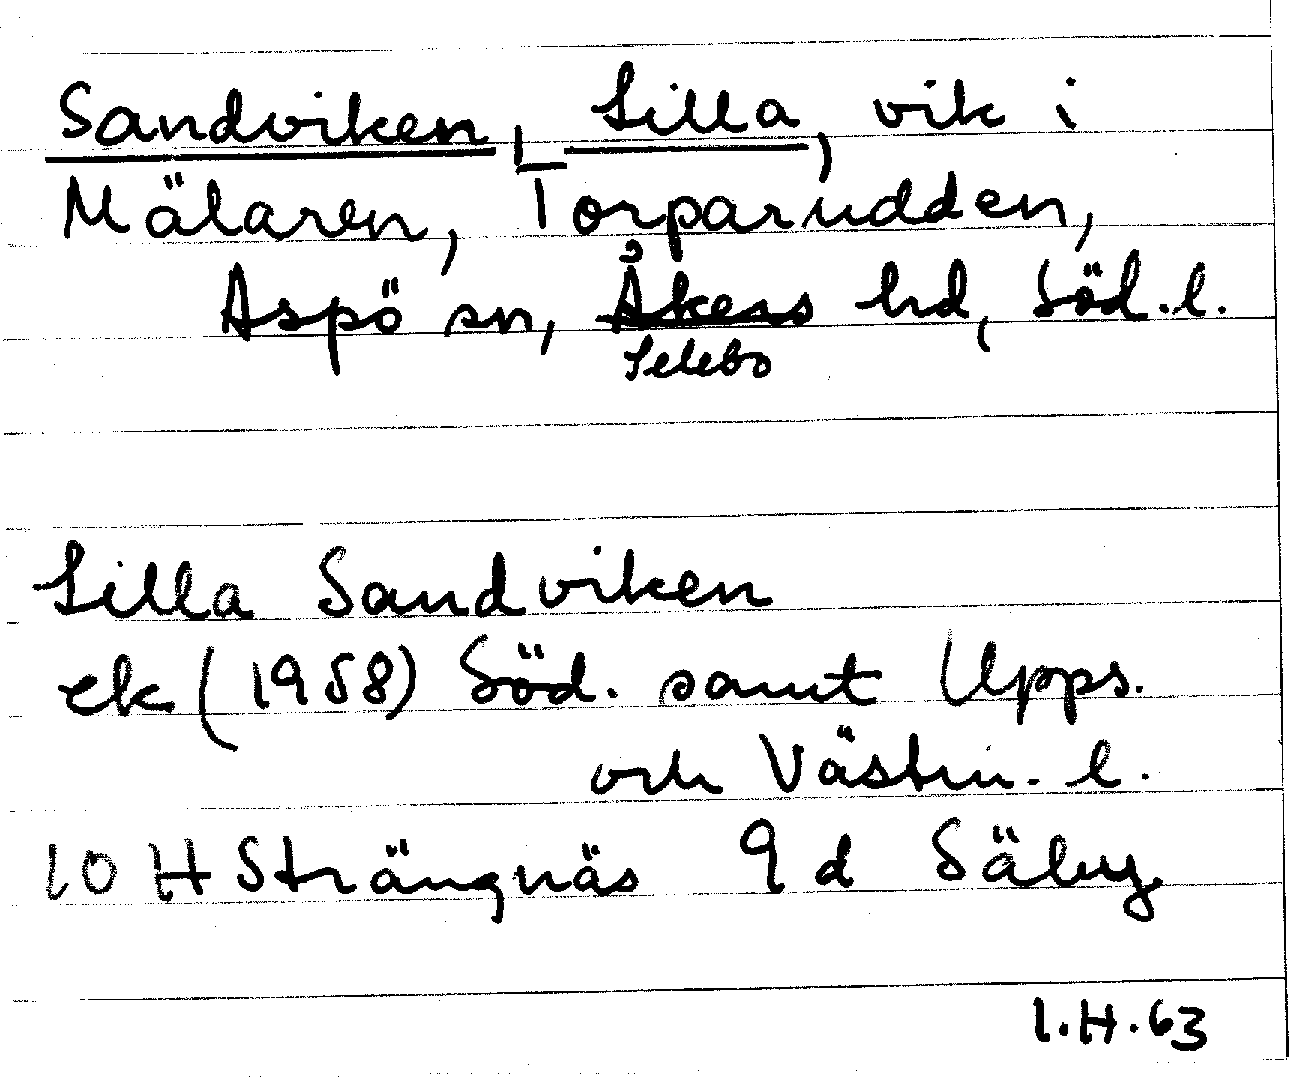 Sandviken, Lilla, vik i
Mälaren, Torparudden,
Aspö sn, Åkers hd, Söd.l.
Selebo
Lilla Sandviken
ek (1958) Söd. samt Upps.
och Västm. l.
10 H Strängnäs 9 d Säby
I.H.63